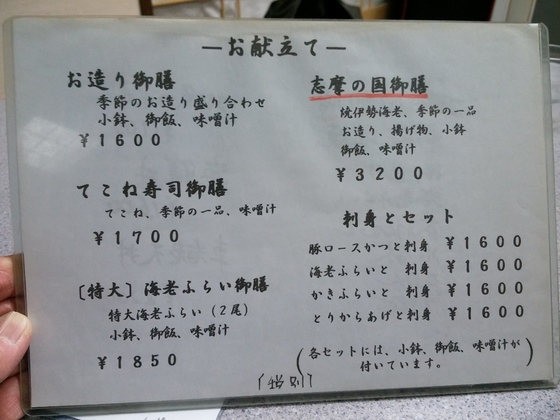 —お献立て—
お造り御膳
季節のお造り盛り合わせ
小鉢、御飯、味噌汁
￥1600
てこね寿司御膳
てこね、季節の一品、味噌汁
￥1700
〔特大〕海老ふらい御膳
特大海老ふらい（2尾）
小鉢、御飯、味噌汁
￥1850
志摩の国御膳
焼伊勢海老、季節の一品
お造り、揚げ物、小鉢
御飯、味噌汁
￥3200
刺身とセット
豚ロースかつと刺身 ￥1600
海老ふらいと 刺身 ￥1600
かきふらいと 刺身 ￥1600
とりからあげと刺身 ￥1600
（各セットには、小鉢、御飯、味噌汁が
付いています。）
〔税別〕